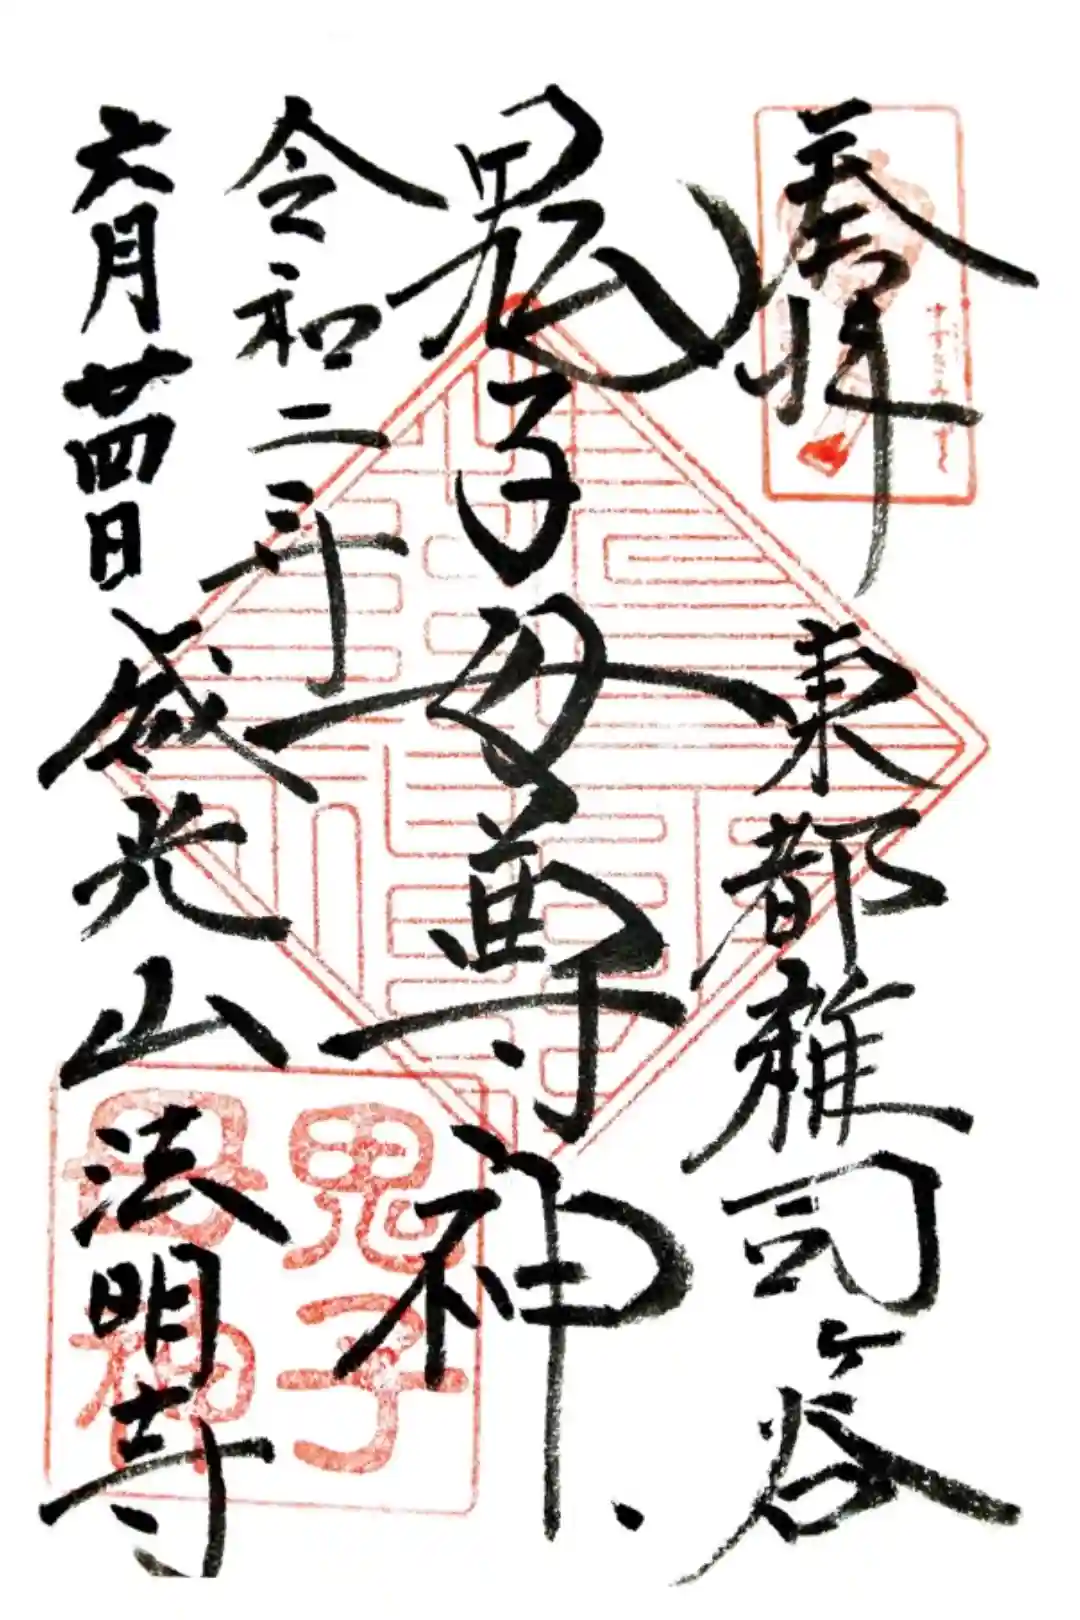 奉拝
東都雑司ヶ谷
鬼子母尊神
令和二年
六月廿四日
威光山法明寺
鬼子母神